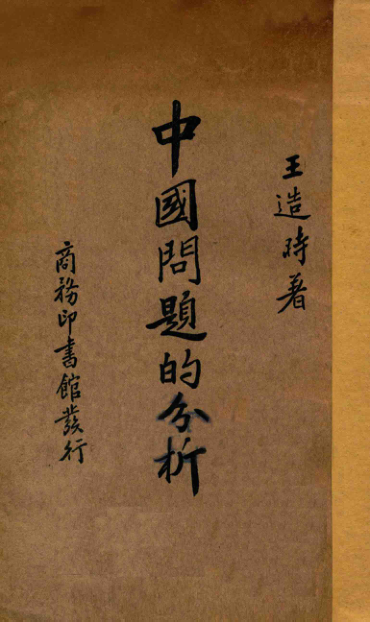 王造時著
中國問題的分析
商務印書館發行